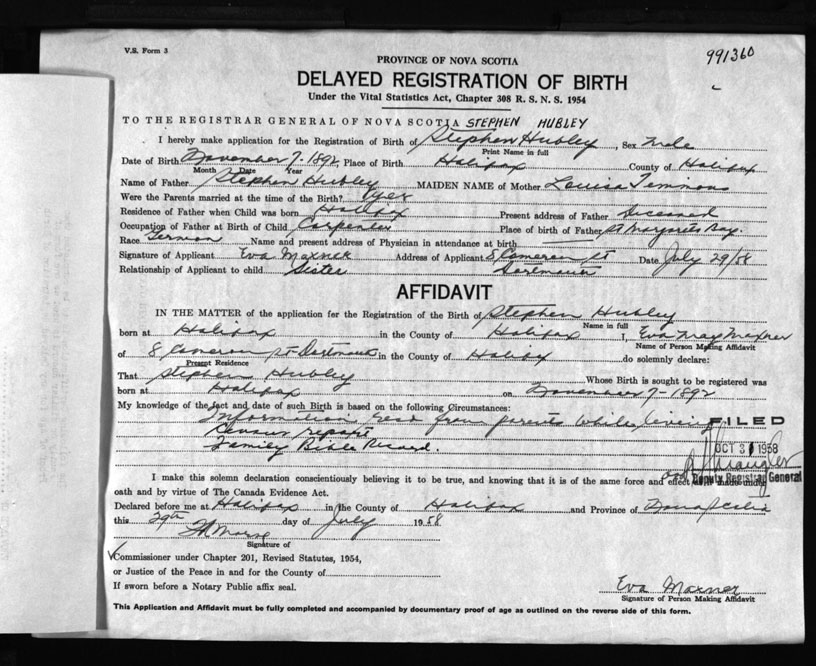 V.S. Form 3
991360
PROVINCE OF NOVA SCOTIA
DELAYED REGISTRATION OF BIRTH
Under the Vital Statistics Act, Chapter 308 R. S. N. S. 1954
TO THE REGISTRAR GENERAL OF NOVA SCOTIA STEPHEN HUBLEY
I hereby make application for the Registration of Birth of Stephen Hubley, Sex Male
Print Name in full
Date of Birth November 7-1892, Place of Birth Halifax County of Halifax
Month Date Year
Name of Father Stephen Hubley MAIDEN NAME of Mother Louisa Temmons
Were the Parents married at the time of the Birth? Yes
Residence of Father when Child was born Halifax Present address of Father Deceased
Occupation of Father at Birth of Child Carpenter Place of birth of Father St Margarets Bay.
Race German Name and present address of Physician in attendance at birth
Signature of Applicant Eva Maxner Address of Applicant 8 Cameron St Date July 29/58
Relationship of Applicant to child Sister Dartmouth
AFFIDAVIT
IN THE MATTER of the application for the Registration of the Birth of Stephen Hubley
Name in full
born at Halifax in the County of Halifax I, Eva May Maxner
Name of Person Making Affidavit
of 8 Cameron St Dartmouth in the County of Halifax do solemnly declare:
Present Residence
That Stephen Hubley Whose Birth is sought to be registered was
born at Halifax on November 7-1892
My knowledge of the fact and date of such Birth is based on the following Circumstances:
Information from parents while living
Census report
Family Bible Record.
FILED
OCT 31 1958
Deputy Registrar General
I make this solemn declaration conscientiously believing it to be true, and knowing that it is of the same force and effect as if made under
oath and by virtue of The Canada Evidence Act.
Declared before me at Halifax in the County of Halifax and Province of Nova Scotia
this 29th day of July 1958
Signature of
Commissioner under Chapter 201, Revised Statutes, 1954,
or Justice of the Peace in and for the County of
If sworn before a Notary Public affix seal.
Eva Maxner
Signature of Person Making Affidavit
This Application and Affidavit must be fully completed and accompanied by documentary proof of age as outlined on the reverse side of this form.